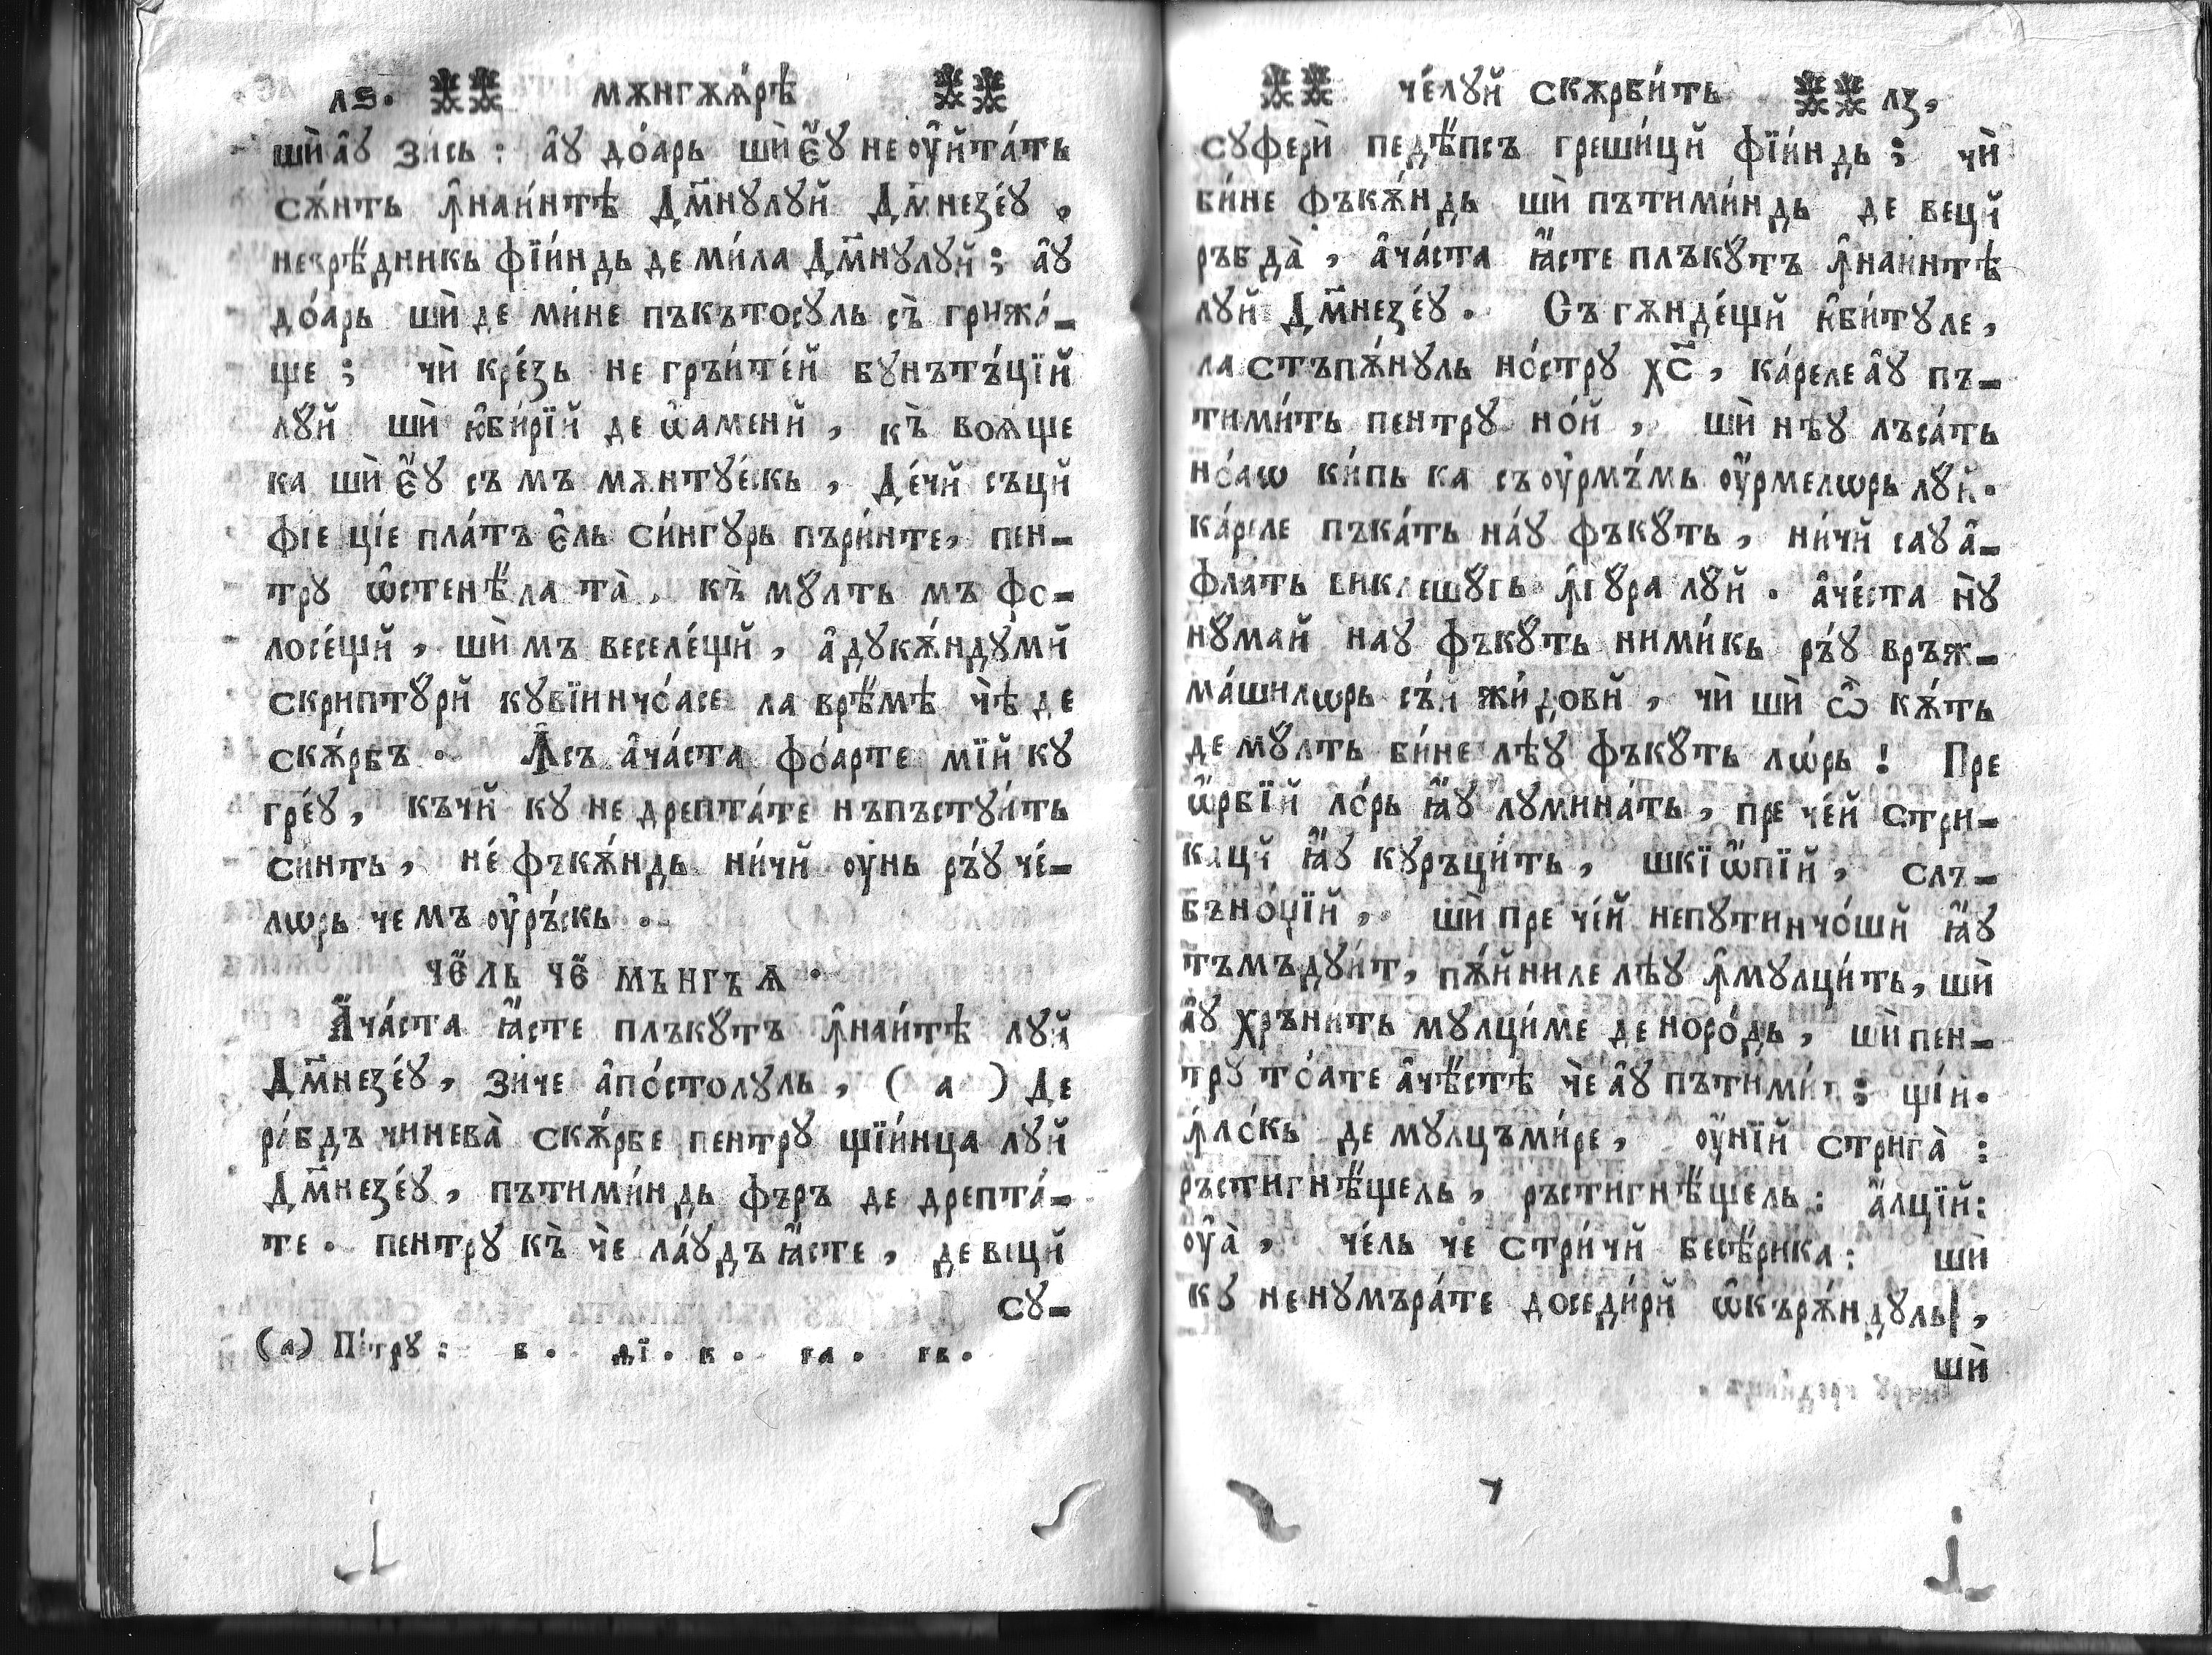 лѕ. мѫнгѫѧ́рѣ
шѝ а҆̂ꙋ зи́сь: а҆̂ꙋ до́арь шѝ є҆́ꙋ не ѹ҆йта́ть
сѫ́нть ꙟ҆наи́нтѣ Дм҃нꙋлꙋй Дм҃незе́ꙋ,
невре́дникь фїи́ндь де ми́ла Дм҃нꙋлꙋй; а҆ꙋ
до́арь шѝ де ми́не пъкътосꙋль съ̀ грижѧ́-
ще; чѝ кре́зь не гръи́те́й бꙋнътъ́цїй
лꙋ́й шѝ ю҆би́рїй де ѡ҆́аменй, къ̀ воѧ́ще
ка шѝ є҆́ꙋ съ мъ мѫнтꙋе́скь, Де́чй съцй
фїе цїе пла́тъ є҆́ль си́нгꙋрь пъри́нте, пен-
трꙋ ѡ҆стенѣ́ла та̀, къ̀ мꙋ́лть мъ фо-
лосе́щй, шѝ мъ веселе́щй, а҆дꙋкѫ́ндꙋмй
скриптꙋ́рй кꙋвїинчо́асе ла врѣ́мѣ чѣ̀ де
скѫ́рбъ. Ꙟсъ а҆ча́ста фо́арте мїй кꙋ
гре́ꙋ, къчй кꙋ не дрепта́те нъпъстꙋи́ть
си́нть, не́ фъкѫ́ндь ни́чй ѹ҆нь ръ́ꙋ че́-
лѡрь че мъ ѹ҆ръ́скь.
че́ль че́ мънгъѧ.
А҆ча́ста ꙗ҆́сте плъкꙋ́тъ ꙟ҆наи́тѣ лꙋй
Дм҃незе́ꙋ, зи́че а҆по́столꙋль, ( а ) Де
ра́бдъ чинева̀ скѫ́рбе пентрꙋ щїи́нца лꙋй
Дм҃незе́ꙋ, пътими́ндь фъръ де дрепта́-
те. пентрꙋ къ̀ чѐ ла́ꙋдъ ꙗ҆́сте, де вецй
сꙋ-
(а) Пе́трꙋ: в. к. ка. кв.
че́лꙋй скѫрби́ть лз,
сꙋферѝ педѣ́псъ греши́цй фїи́ндь; чѝ
би́не фъкѫ́ндь шѝ пътими́ндь де вецй
ръбда̀, а҆ча́ста ꙗ҆́сте плъкꙋ́тъ ꙟ҆наи́нтѣ
лꙋй Дм҃незе́ꙋ. Съ гѫнде́щй ю҆би́тꙋле,
ла стъпѫ́нꙋль но́стрꙋ хс҃, ка́реле а҆ꙋ пъ-
тими́ть пентрꙋ но́й, шѝ нѣꙋ лъса́ть
но́аѡ ки́пь ка съ ѹ҆рмъ́мь ѹ҆́рмелѡрь лꙋ́й.
ка́реле пъка́ть на́ꙋ фъкꙋ́ть, ни́чй саꙋ а҆-
флать виклешꙋ́гь ꙟ҆ гꙋ́ра лꙋ́й. а҆че́ста нꙋ̀
нꙋ́май наꙋ фъкꙋ́ть ними́кь ръ́ꙋ връж-
ма́шилѡрь съ́й жи́довй, чѝ шѝ ѽ кѫ́ть
де мꙋ́лть би́не лѣꙋ фъкꙋ́ть лѡ́рь! Пре
ѡ҆́рбїй ло́рь ꙗ҆́ꙋ лꙋмина́ть, пре че́й стри-
кацй ꙗ҆́ꙋ кꙋръци́ть, шкїѡ́пїй, слъ-
бъно́џїй, шѝ пре че́й непꙋтинчо́шй ꙗ҆́ꙋ
тъмъдꙋи́т, пѫ́йниле лѣꙋ ꙟ҆мꙋлци́ть, шѝ
а҆ꙋ хръни́ть мꙋлци́ме де норо́дь, шѝ пен-
трꙋ то́ате а҆чѣ́стѣ чѐ а҆ꙋ пътими́т; щїи.
ꙟ҆ло́кь де мꙋлцъми́ре, ѹ҆́нїй стрига̀:
ръстигнѣ́щель, ръстигнѣ́щель: а҆́лцїй:
ѹ҆а̀, че́ль че стри́чй бесѣ́рика: шѝ
кꙋ ненꙋмъра́те доседи́рй ѡ҆кърѫ́ндꙋль,
шѝ